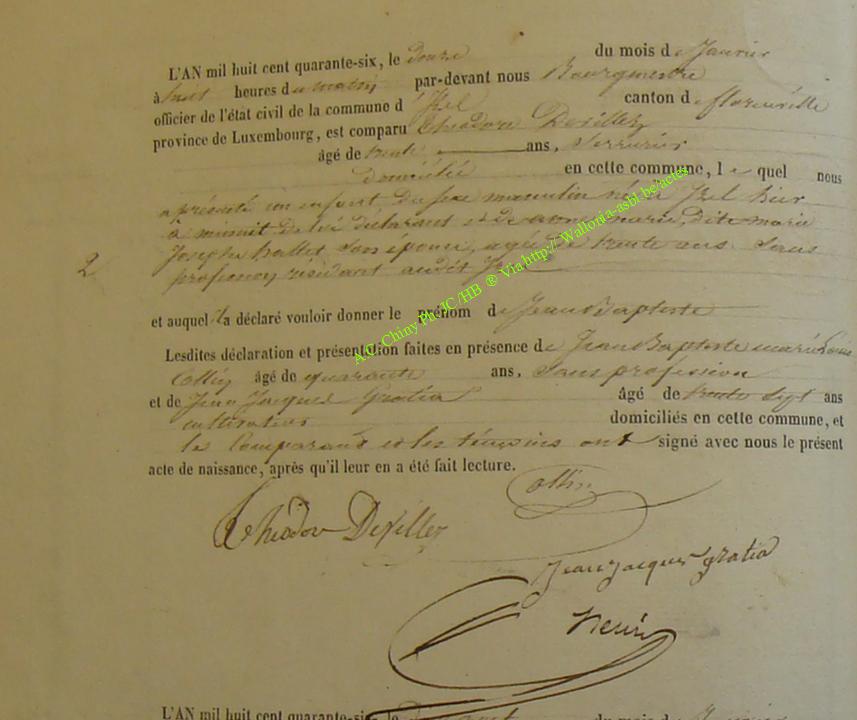 L'AN mil huit cent quarante-six, le douze du mois de Janvier
à huit heures du matin par-devant nous Bourgmestre
officier de l'état civil de la commune d'Izel canton de florenville
province de Luxembourg, est comparu Théodore Deviller
âgé de trente ans, Serrurier
domicilié en cette commune, le quel nous
a présenté un enfant du sexe masculin né à Izel hier
à minuit de lui déclarant et de marie, dite marie
Josephe hallet son épouse, agée de trente ans Sans
2
profession résidant audit Izel
et auquel il a déclaré vouloir donner le prénom de Jean Baptiste
Lesdites déclaration et présentation faites en présence de Jean Baptiste marie Louis
Collin âgé de quarante ans, Sans profession
et de Jean Jacques Gratia âgé de trente Sept ans
cultivateur domiciliés en cette commune, et
le Comparant et les témoins ont signé avec nous le présent
acte de naissance, après qu'il leur en a été fait lecture.
Collin
Théodor Deviller
Jean Jacques gratia
henri
A.C. Chiny Ph JC/HB ® Via http://Wallonia-asbl.be/actes
L'AN mil huit cent quarante-six, le du mois de Janvier